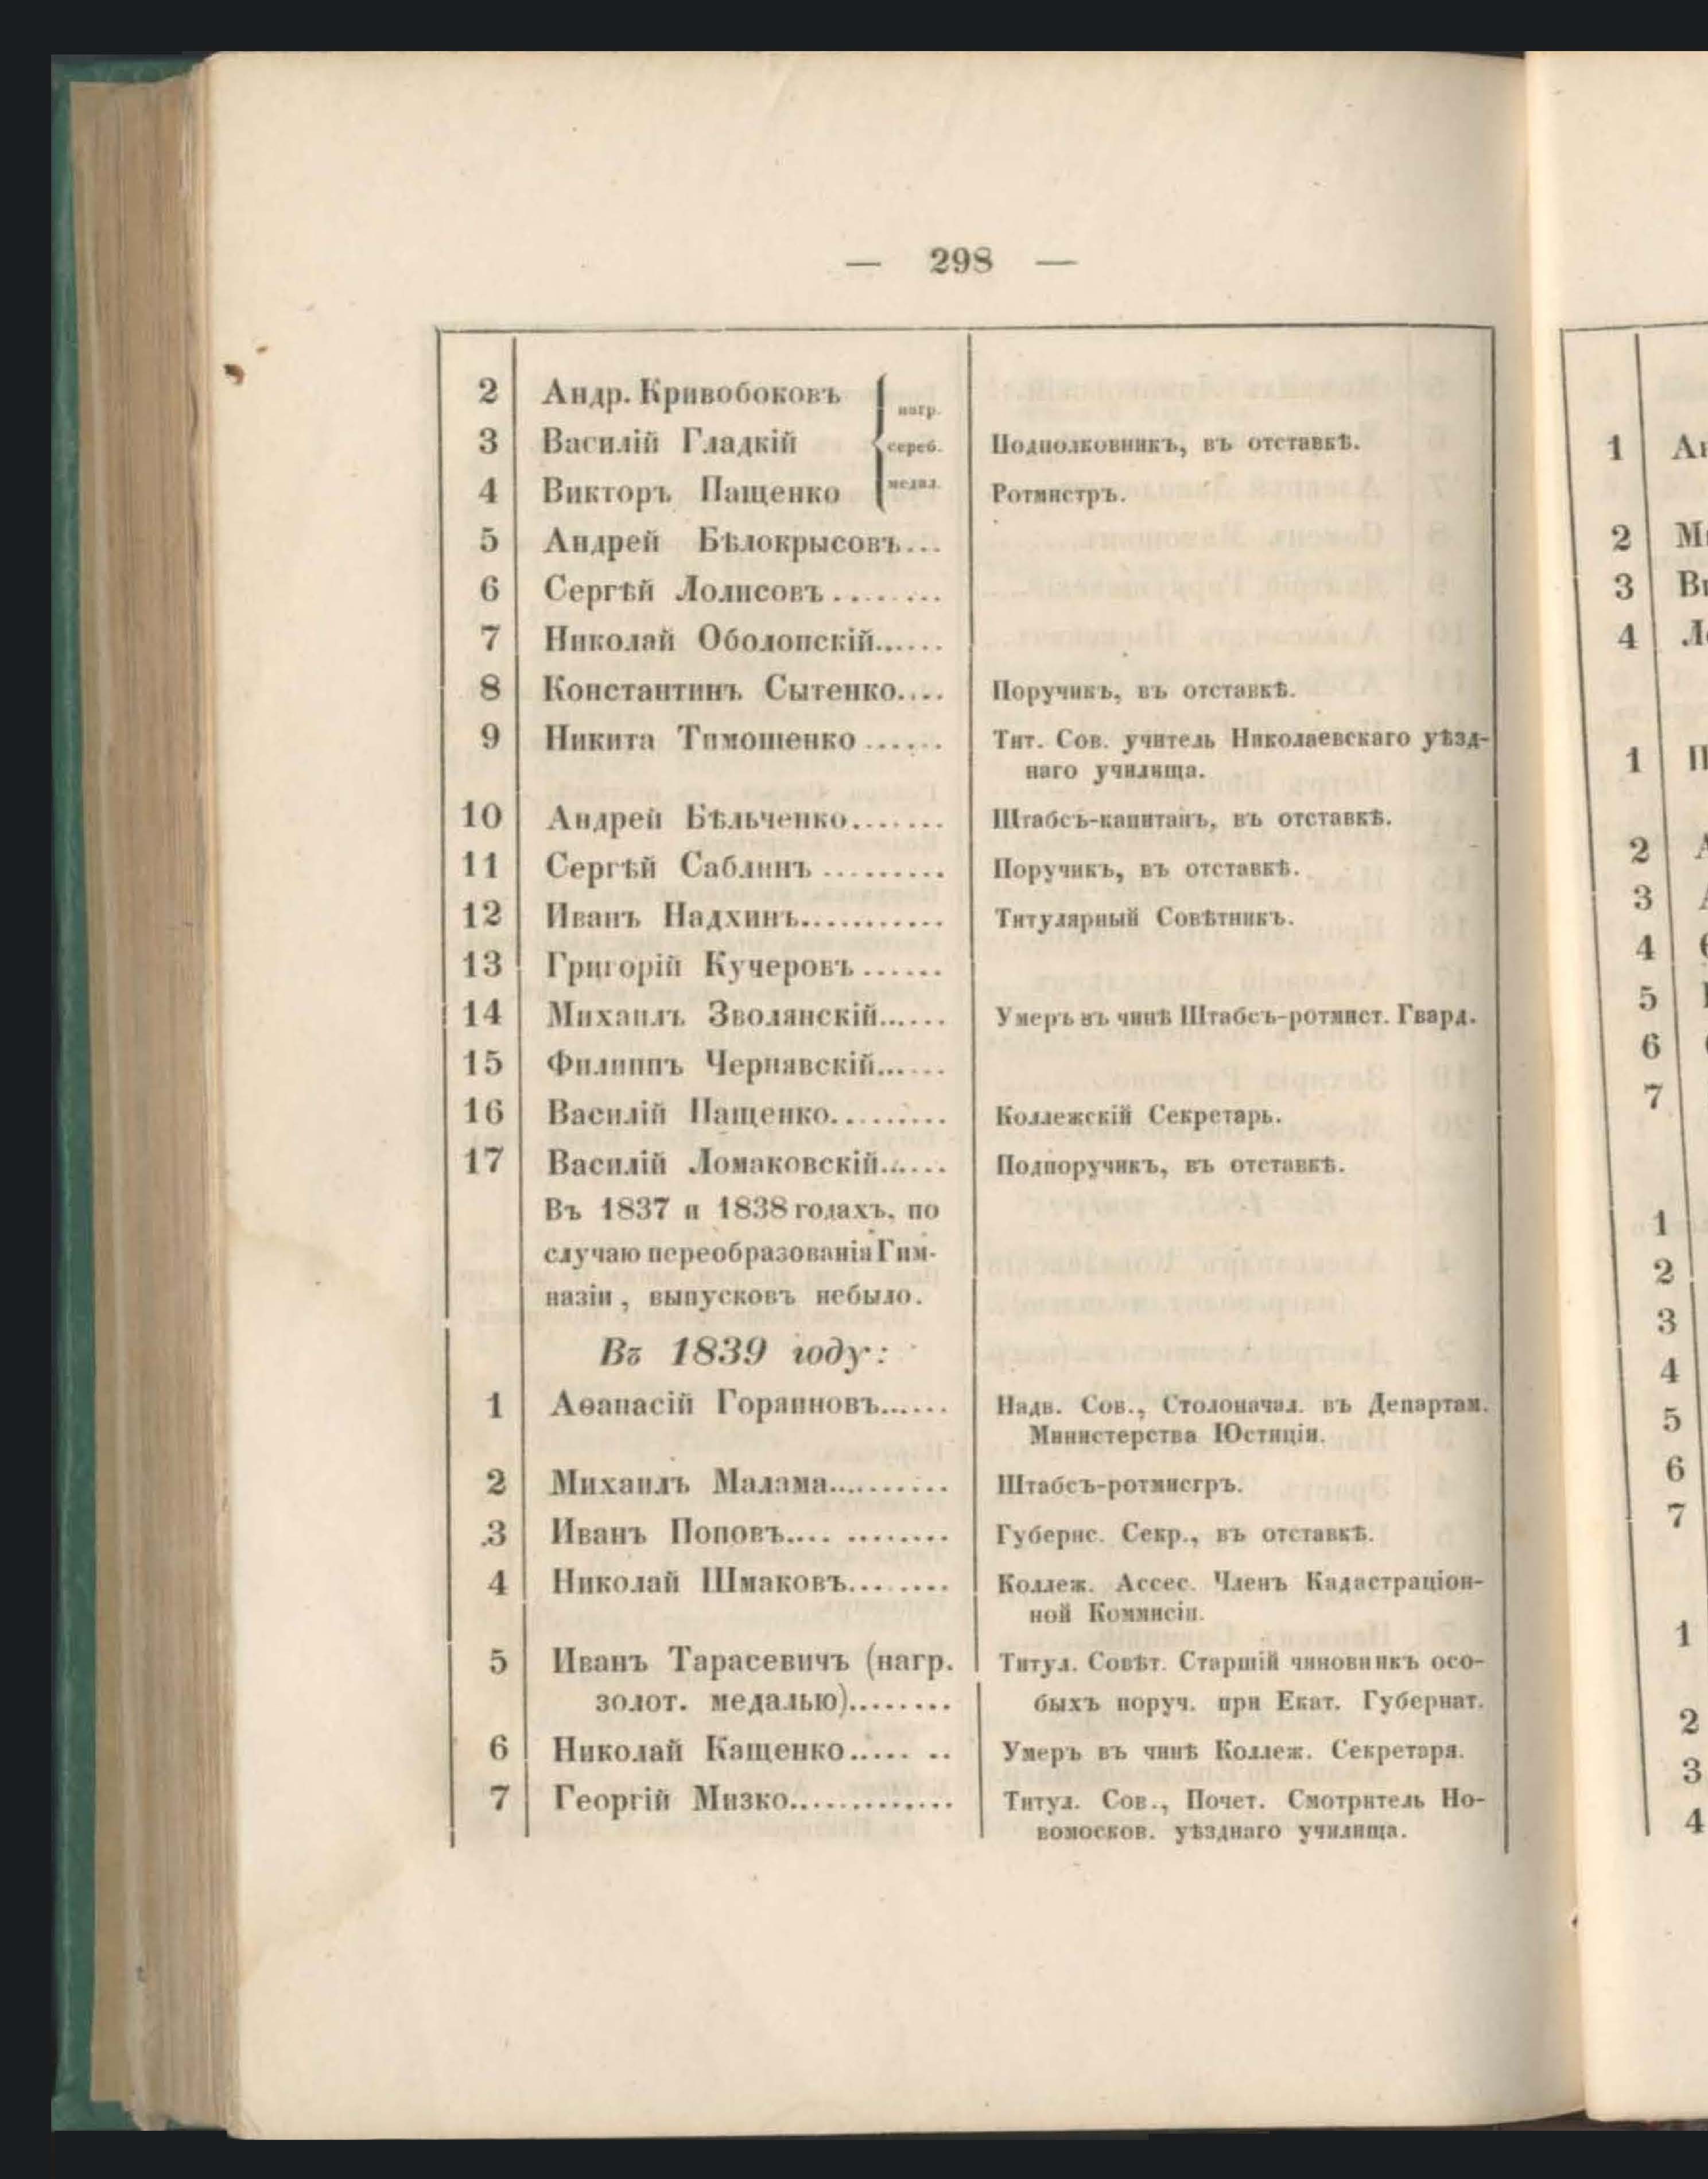 — 298 —
2 Андр. Кривобоковъ нагр.
3 Василій Гладкій сереб. Подполковникъ, въ отставкѣ.
4 Викторъ Пащенко медал. Ротмистръ.
5 Андрей Бѣлокрысовъ...
6 Сергѣй Лолисовъ........
7 Николай Оболонскій......
8 Константинъ Сытенко.... Поручикъ, въ отставкѣ.
9 Никита Тимошенко...... Тит. Сов. учитель Николаевскаго уѣзд-
наго училища.
10 Андрей Бѣльченко....... Штабсъ-капитанъ, въ отставкѣ.
11 Сергѣй Саблинъ......... Поручикъ, въ отставкѣ.
12 Иванъ Надхинъ........... Титулярный Совѣтникъ.
13 Григорій Кучеровъ......
14 Михаилъ Зволянскій...... Умеръ въ чинѣ Штабсъ-ротмист. Гвард.
15 Филиппъ Чернявскій......
16 Василій Пащенко......... Коллежскій Секретарь.
17 Василій Ломаковскій...... Подпоручикъ, въ отставкѣ.
Въ 1837 и 1838 годахъ, по
случаю переобразованія Гим-
назіи, выпусковъ небыло.
Въ 1839 году:
1 Аѳанасій Горяиновъ...... Надв. Сов., Столоначал. въ Департам.
Министерства Юстиціи.
2 Михаилъ Малама.......... Штабсъ-ротмистръ.
3 Иванъ Поповъ.... ........ Губернс. Секр., въ отставкѣ.
4 Николай Шмаковъ........ Коллеж. Ассес. Членъ Кадастраціон-
ной Коммисіи.
5 Иванъ Тарасевичъ (нагр. Титул. Совѣт. Старшій чиновникъ осо-
золот. медалью)........ быхъ поруч. при Екат. Губернат.
6 Николай Кащенко..... .. Умеръ въ чинѣ Коллеж. Секретаря.
7 Георгій Мизко............. Титул. Сов., Почет. Смотритель Но-
вомосков. уѣзднаго училища.
1
2
3
4
1
2
3
4
5
6
7
1
2
3
4
5
6
7
1
2
3
4